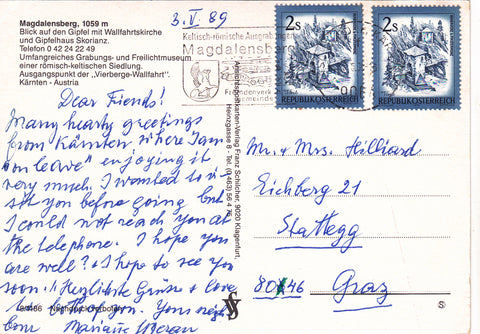 Magdalensberg, 1059 m
Blick auf den Gipfel mit Wallfahrtskirche
und Gipfelhaus Skorianz.
Telefon 0 42 24 22 49
Umfangreiches Grabungs- und Freilichtmuseum
einer römisch-keltischen Siedlung.
Ausgangspunkt der „Vierberge-Wallfahrt".
Kärnten - Austria
3. V. 89
Keltisch-römische Ausgrabungen
Magdalensberg
Fremdenverkehrs
gemeinde
2 S
REPUBLIK ÖSTERREICH
2 S
REPUBLIK ÖSTERREICH
Dear Friends!
Many hearty greetings
from Kärnten where I am
"on leave" enjoying it
very much. I wanted to vi-
sit you before going but
I could not reach you at
the telephone. I hope you
are well? + I hope to see you
soon. Herzlichste Grüße + love
to both of you. Your neigh-
bour
Nachdruck verboten
Kunstpostkarten-Verlag Franz Schilcher, 9020 Klagenfurt,
Mr. + Mrs. Hilliard
Eichberg 21
Stattegg
8046 Graz